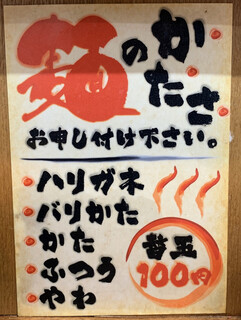 麺のかたさ
お申し付け下さい。
ハリガネ
バリかた
かた
ふつう
やわ
替玉
100円